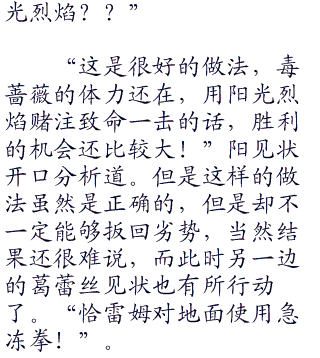 光烈焰？？”
“这是很好的做法，毒
蔷薇的体力还在，用阳光烈
焰赌注致命一击的话，胜利
的机会还比较大！”阳见状
开口分析道。但是这样的做
法虽然是正确的，但是却不
一定能够扳回劣势，当然结
果还很难说，而此时另一边
的葛蕾丝见状也有所行动
了。“恰雷姆对地面使用急
冻拳！”。